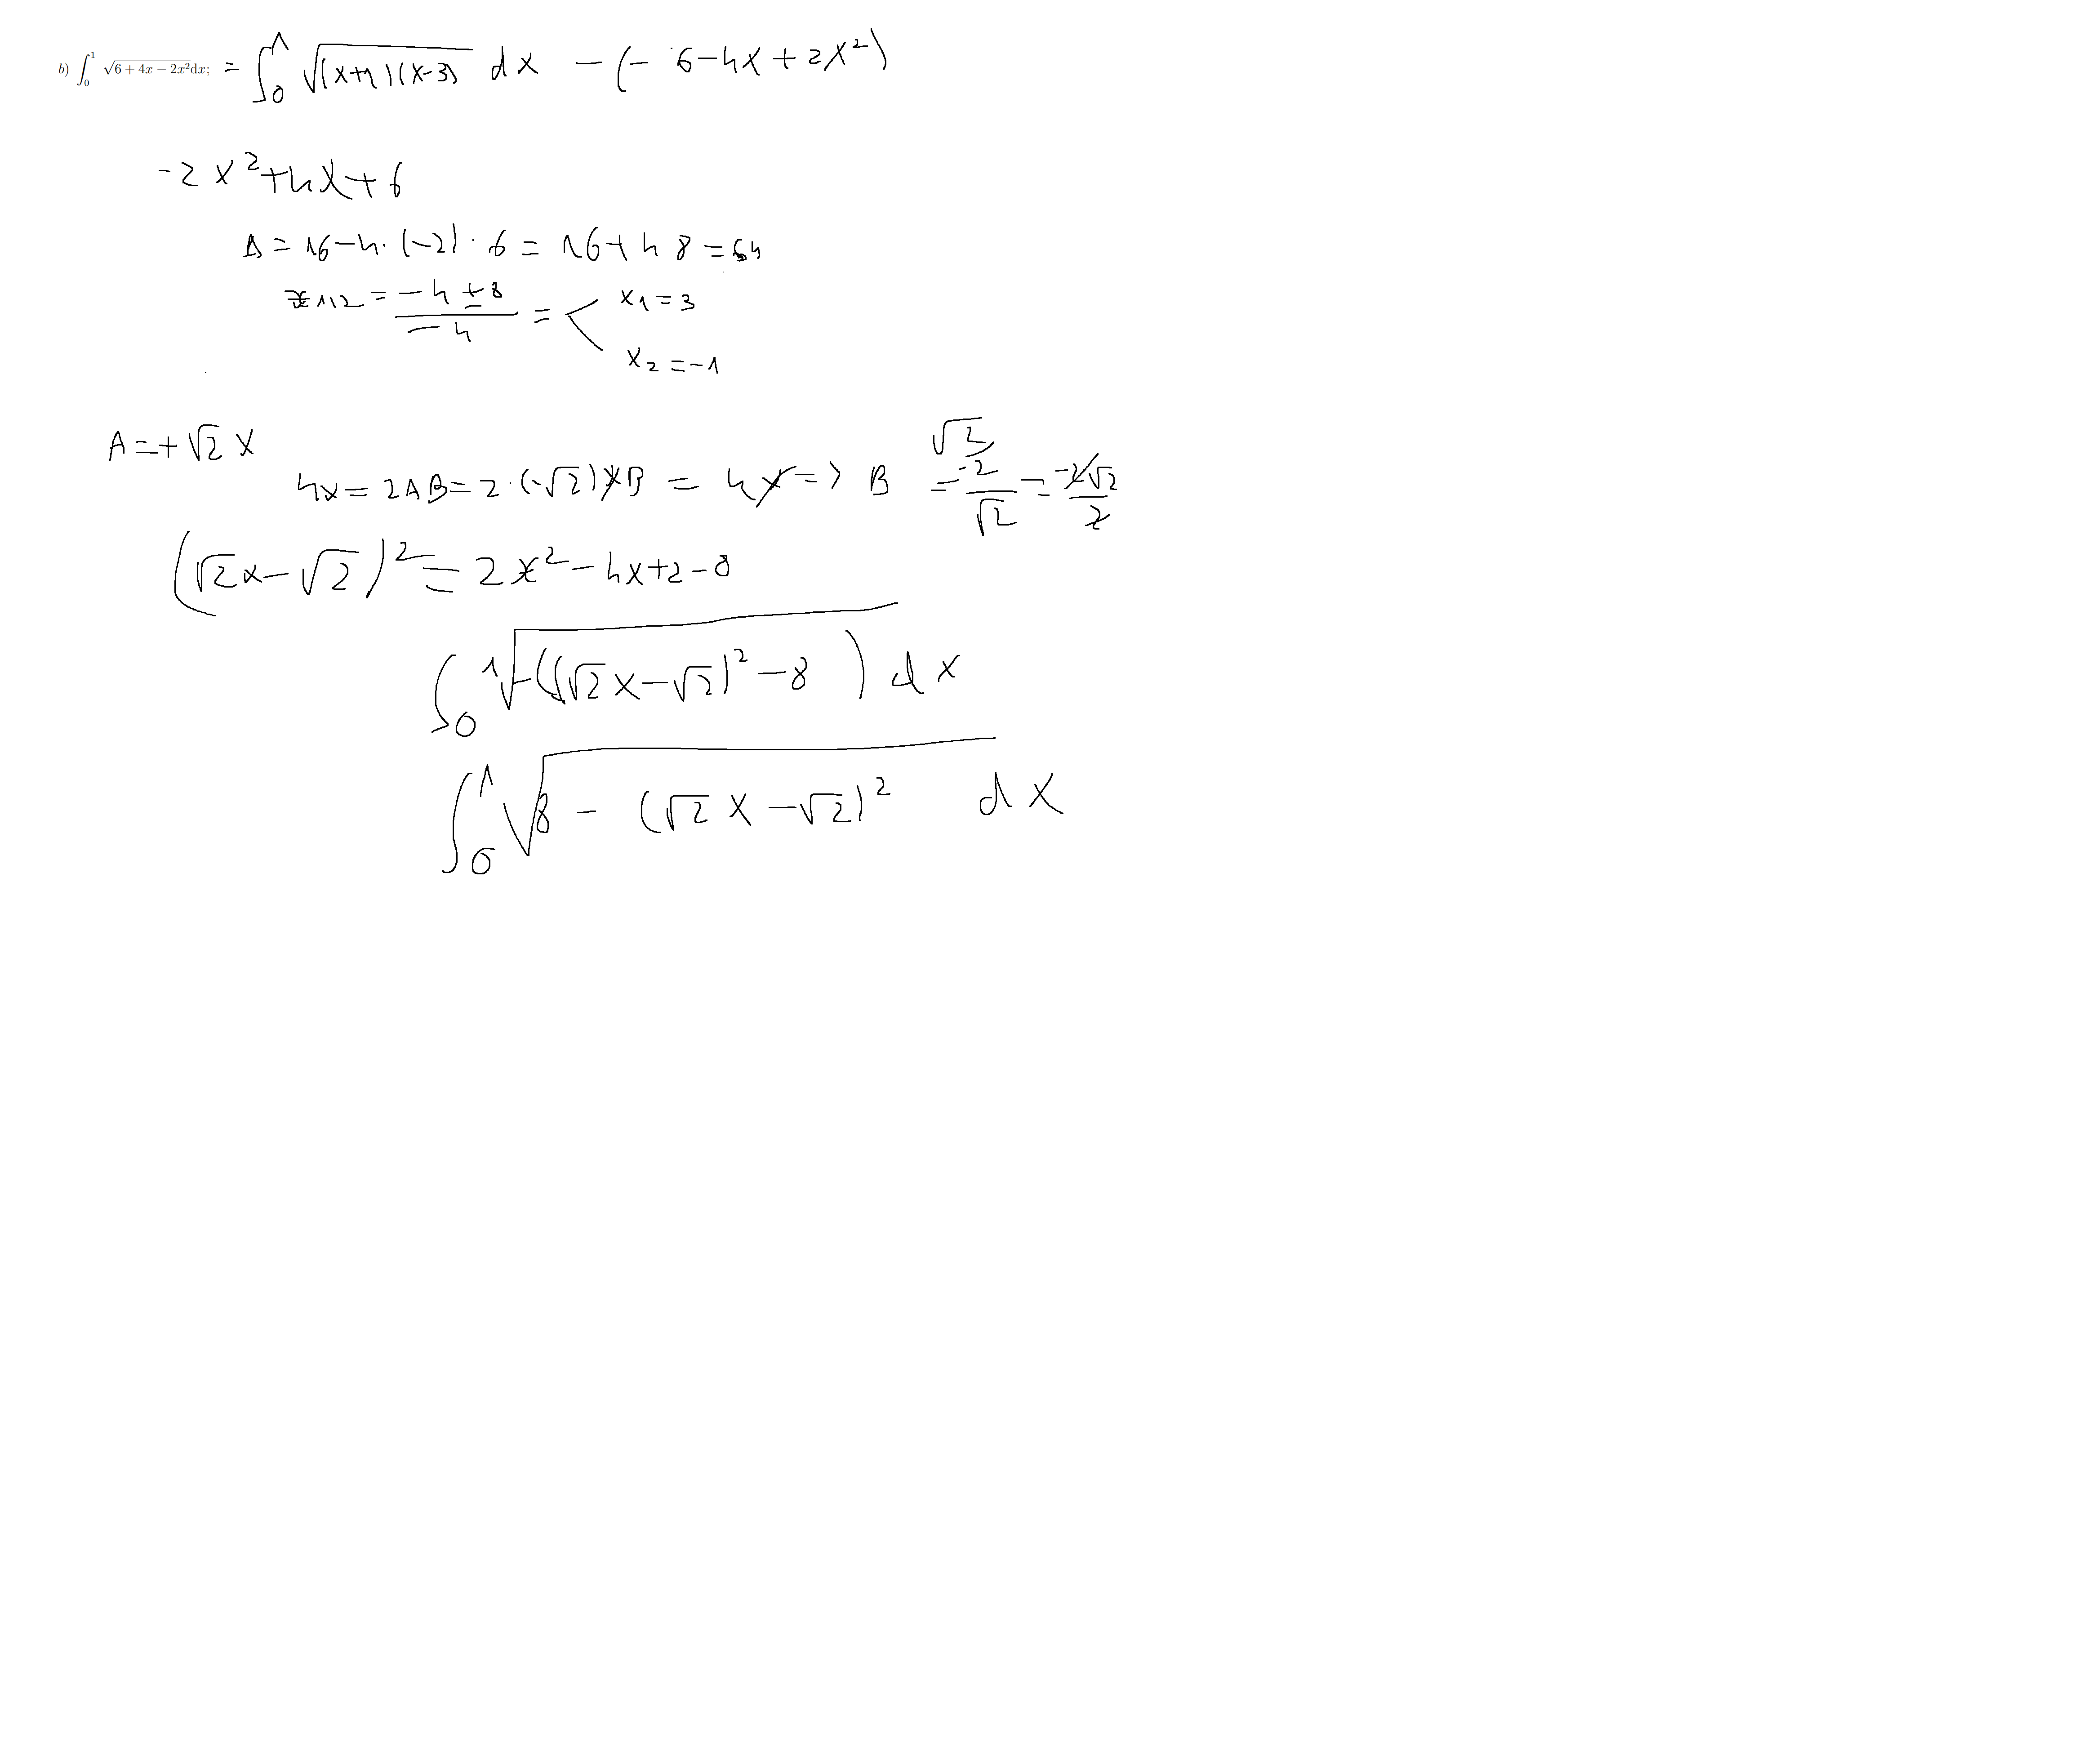 b) ∫₀¹ √(6 + 4x − 2x²)dx; = ∫₀¹ √((x+1)(x-3)) dx − (− 6 − 4x + 2x²)
-2x² + 4x + 6
Δ = 16 − 4·(−2)·6 = 16 + 48 = 64
x1,2 = (−4 ± 8)/(−4) = < x₁ = 3
x₂ = −1
A = + √2 x
4x = 2AB = 2·(−√2)xB = 4x => B = −2/√2 = −2√2/2
√2
(√2x − √2)² = 2x² − 4x + 2 − 8
∫₀¹ √(−((√2x − √2)² − 8)) dx
∫₀¹ √(8 − (√2x − √2)²) dx